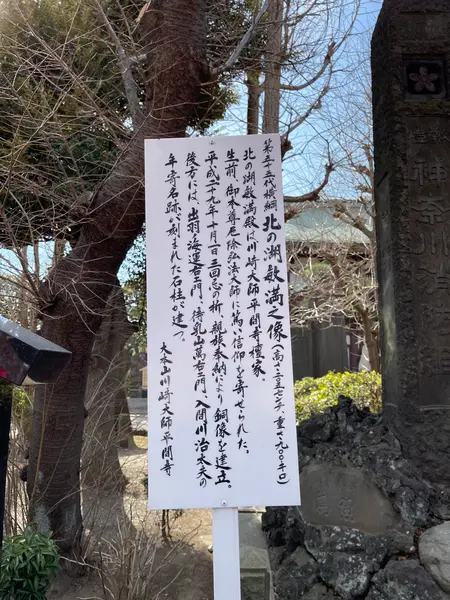 第五十五代横綱 北の湖敏満之像(高さ 重さ九〇〇キロ)
北の湖敏満殿は川崎大師平間寺檀家。
生前、御本尊厄除弘法大師に篤い信仰を寄せられた。
平成二十九年十月一日三回忌の折、親族奉納により銅像を建立。
後方には、出羽ノ海運右エ門、待乳山萬右エ門、入間川治太夫の
年寄名跡が刻まれた石柱が建つ。
大本山川崎大師平間寺
神奈川